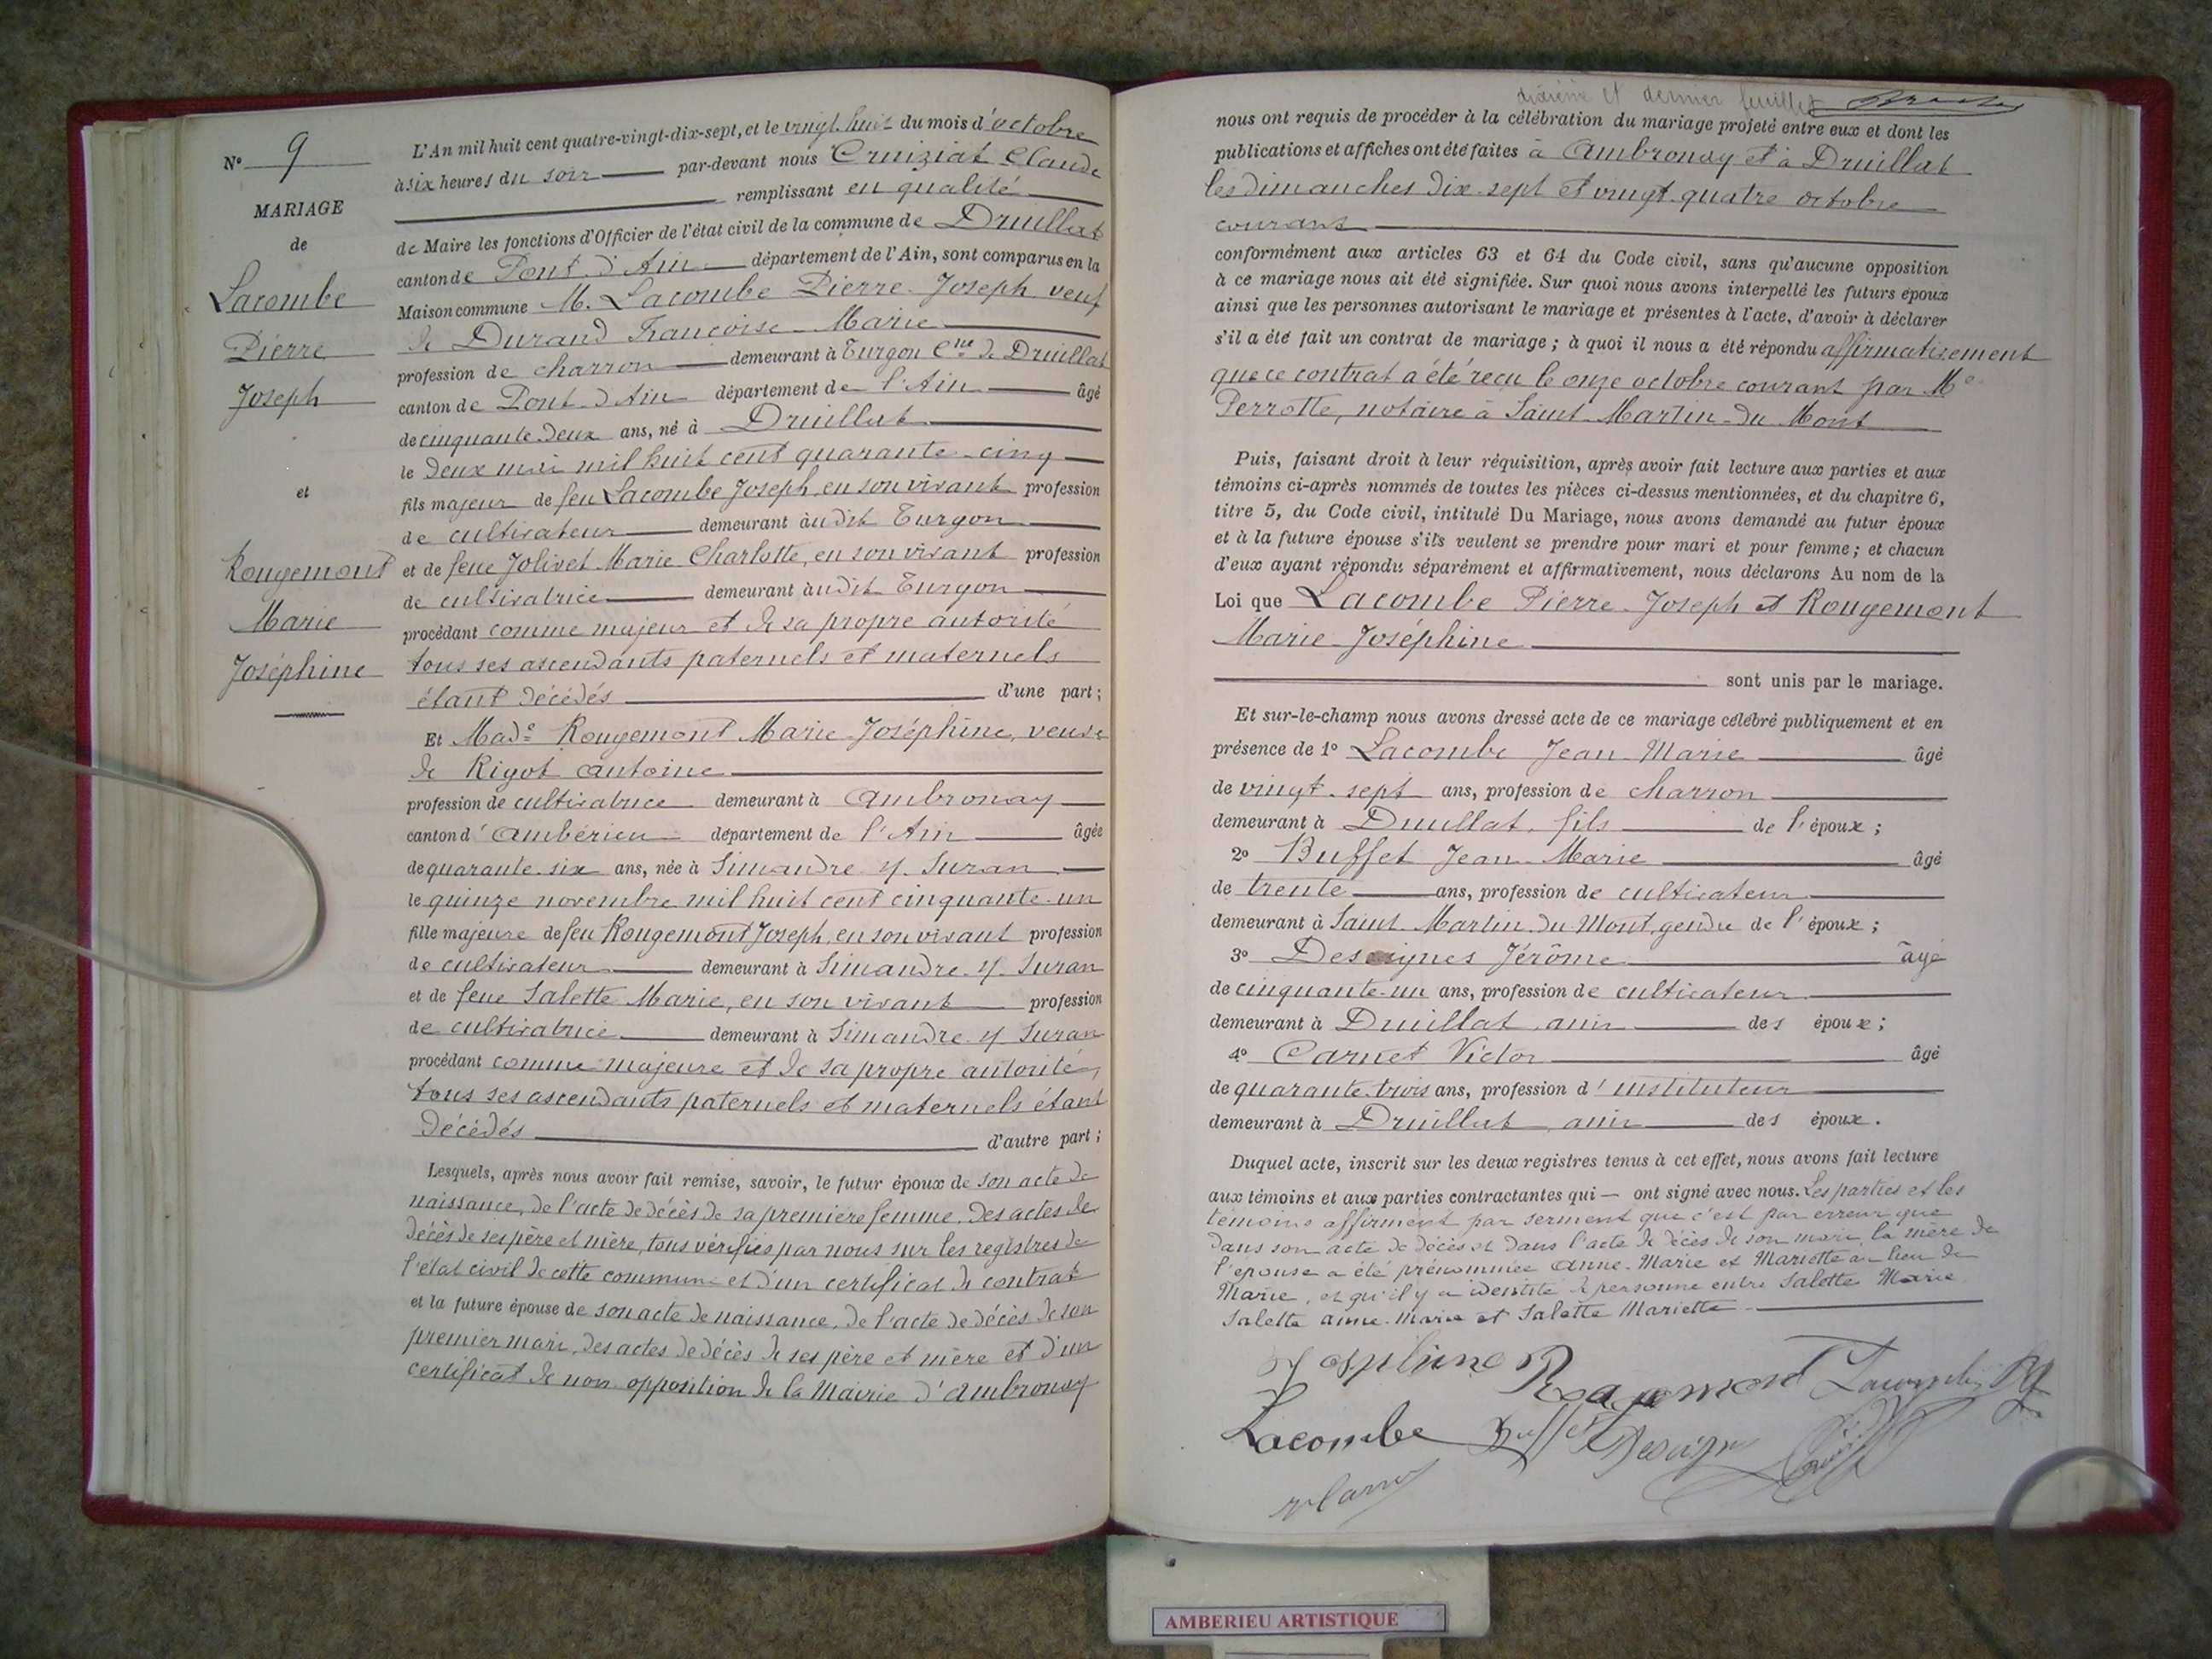 N° 9
MARIAGE
de
Lacombe
Pierre
Joseph
et
Rougemont
Marie
Joséphine
L'An mil huit cent quatre-vingt-dix-sept, et le vingt-huit du mois d'octobre
à six heures du soir par-devant nous Cruiziat Claude
remplissant en qualité
de Maire les fonctions d'Officier de l'état civil de la commune de Druillat
canton de Pont-d'Ain département de l'Ain, sont comparus en la
Maison commune M. Lacombe Pierre-Joseph veuf
de Durand Françoise-Marie
profession de charron demeurant à Turgon Cne de Druillat
canton de Pont-d'Ain département de l'Ain âgé
de cinquante-deux ans, né à Druillat
le deux mai mil huit cent quarante-cinq
fils majeur de feu Lacombe Joseph, en son vivant profession
de cultivateur demeurant audit Turgon
et de feue Jolivet Marie Charlotte, en son vivant profession
de cultivatrice demeurant audit Turgon
procédant comme majeur et de sa propre autorité
tous ses ascendants paternels et maternels
étant décédés d'une part;
Et Made Rougemont Marie-Joséphine, veuve
de Rigot Antoine
profession de cultivatrice demeurant à Ambronay
canton d'Ambérieu département de l'Ain âgée
de quarante-six ans, née à Simandre s/ Suran
le quinze novembre mil huit cent cinquante-un
fille majeure de feu Rougemont Joseph, en son vivant profession
de cultivateur demeurant à Simandre s/ Suran
et de feue Salette Marie, en son vivant profession
de cultivatrice demeurant à Simandre s/ Suran
procédant comme majeure et de sa propre autorité,
tous ses ascendants paternels et maternels étant
décédés d'autre part;
Lesquels, après nous avoir fait remise, savoir, le futur époux de son acte de
naissance, de l'acte de décès de sa première femme, des actes de
décès de ses père et mère, tous vérifiés par nous sur les registres de
l'état civil de cette commune et d'un certificat de contrat
et la future épouse de son acte de naissance, de l'acte de décès de son
premier mari, des actes de décès de ses père et mère et d'un
certificat de non opposition de la Mairie d'Ambronay
dixième et dernier feuillet
nous ont requis de procéder à la célébration du mariage projeté entre eux et dont les
publications et affiches ont été faites à Ambronay et à Druillat
les dimanches dix-sept et vingt-quatre octobre
courant
conformément aux articles 63 et 64 du Code civil, sans qu'aucune opposition
à ce mariage nous ait été signifiée. Sur quoi nous avons interpellé les futurs époux
ainsi que les personnes autorisant le mariage et présentes à l'acte, d'avoir à déclarer
s'il a été fait un contrat de mariage; à quoi il nous a été répondu affirmativement
que ce contrat a été reçu le onze octobre courant par Me
Perrotte, notaire à Saint-Martin-du-Mont
Puis, faisant droit à leur réquisition, après avoir fait lecture aux parties et aux
témoins ci-après nommés de toutes les pièces ci-dessus mentionnées, et du chapitre 6,
titre 5, du Code civil, intitulé Du Mariage, nous avons demandé au futur époux
et à la future épouse s'ils veulent se prendre pour mari et pour femme; et chacun
d'eux ayant répondu séparément et affirmativement, nous déclarons Au nom de la
Loi que Lacombe Pierre-Joseph et Rougemont
Marie-Joséphine
sont unis par le mariage.
Et sur-le-champ nous avons dressé acte de ce mariage célébré publiquement et en
présence de 1° Lacombe Jean-Marie âgé
de vingt-sept ans, profession de charron
demeurant à Druillat, fils de l'époux;
2° Buffet Jean-Marie âgé
de trente ans, profession de cultivateur
demeurant à Saint-Martin-du-Mont, gendre de l'époux;
3° Jérôme âgé
de cinquante-un ans, profession de cultivateur
demeurant à Druillat, ami des époux;
4° Carnet Victor âgé
de quarante-trois ans, profession d'instituteur
demeurant à Druillat ami des époux.
Duquel acte, inscrit sur les deux registres tenus à cet effet, nous avons fait lecture
aux témoins et aux parties contractantes qui — ont signé avec nous. Les parties et les
témoins affirment par serment que c'est par erreur que
dans son acte de décès et dans l'acte de décès de son mari, la mère de
l'épouse a été prénommée Anne-Marie et Mariette au lieu de
Marie, et qu'il y a identité de personne entre Salette Marie
Salette Anne-Marie et Salette Mariette
Josephine Rougemont Lacombe
Lacombe Buffet
AMBERIEU ARTISTIQUE